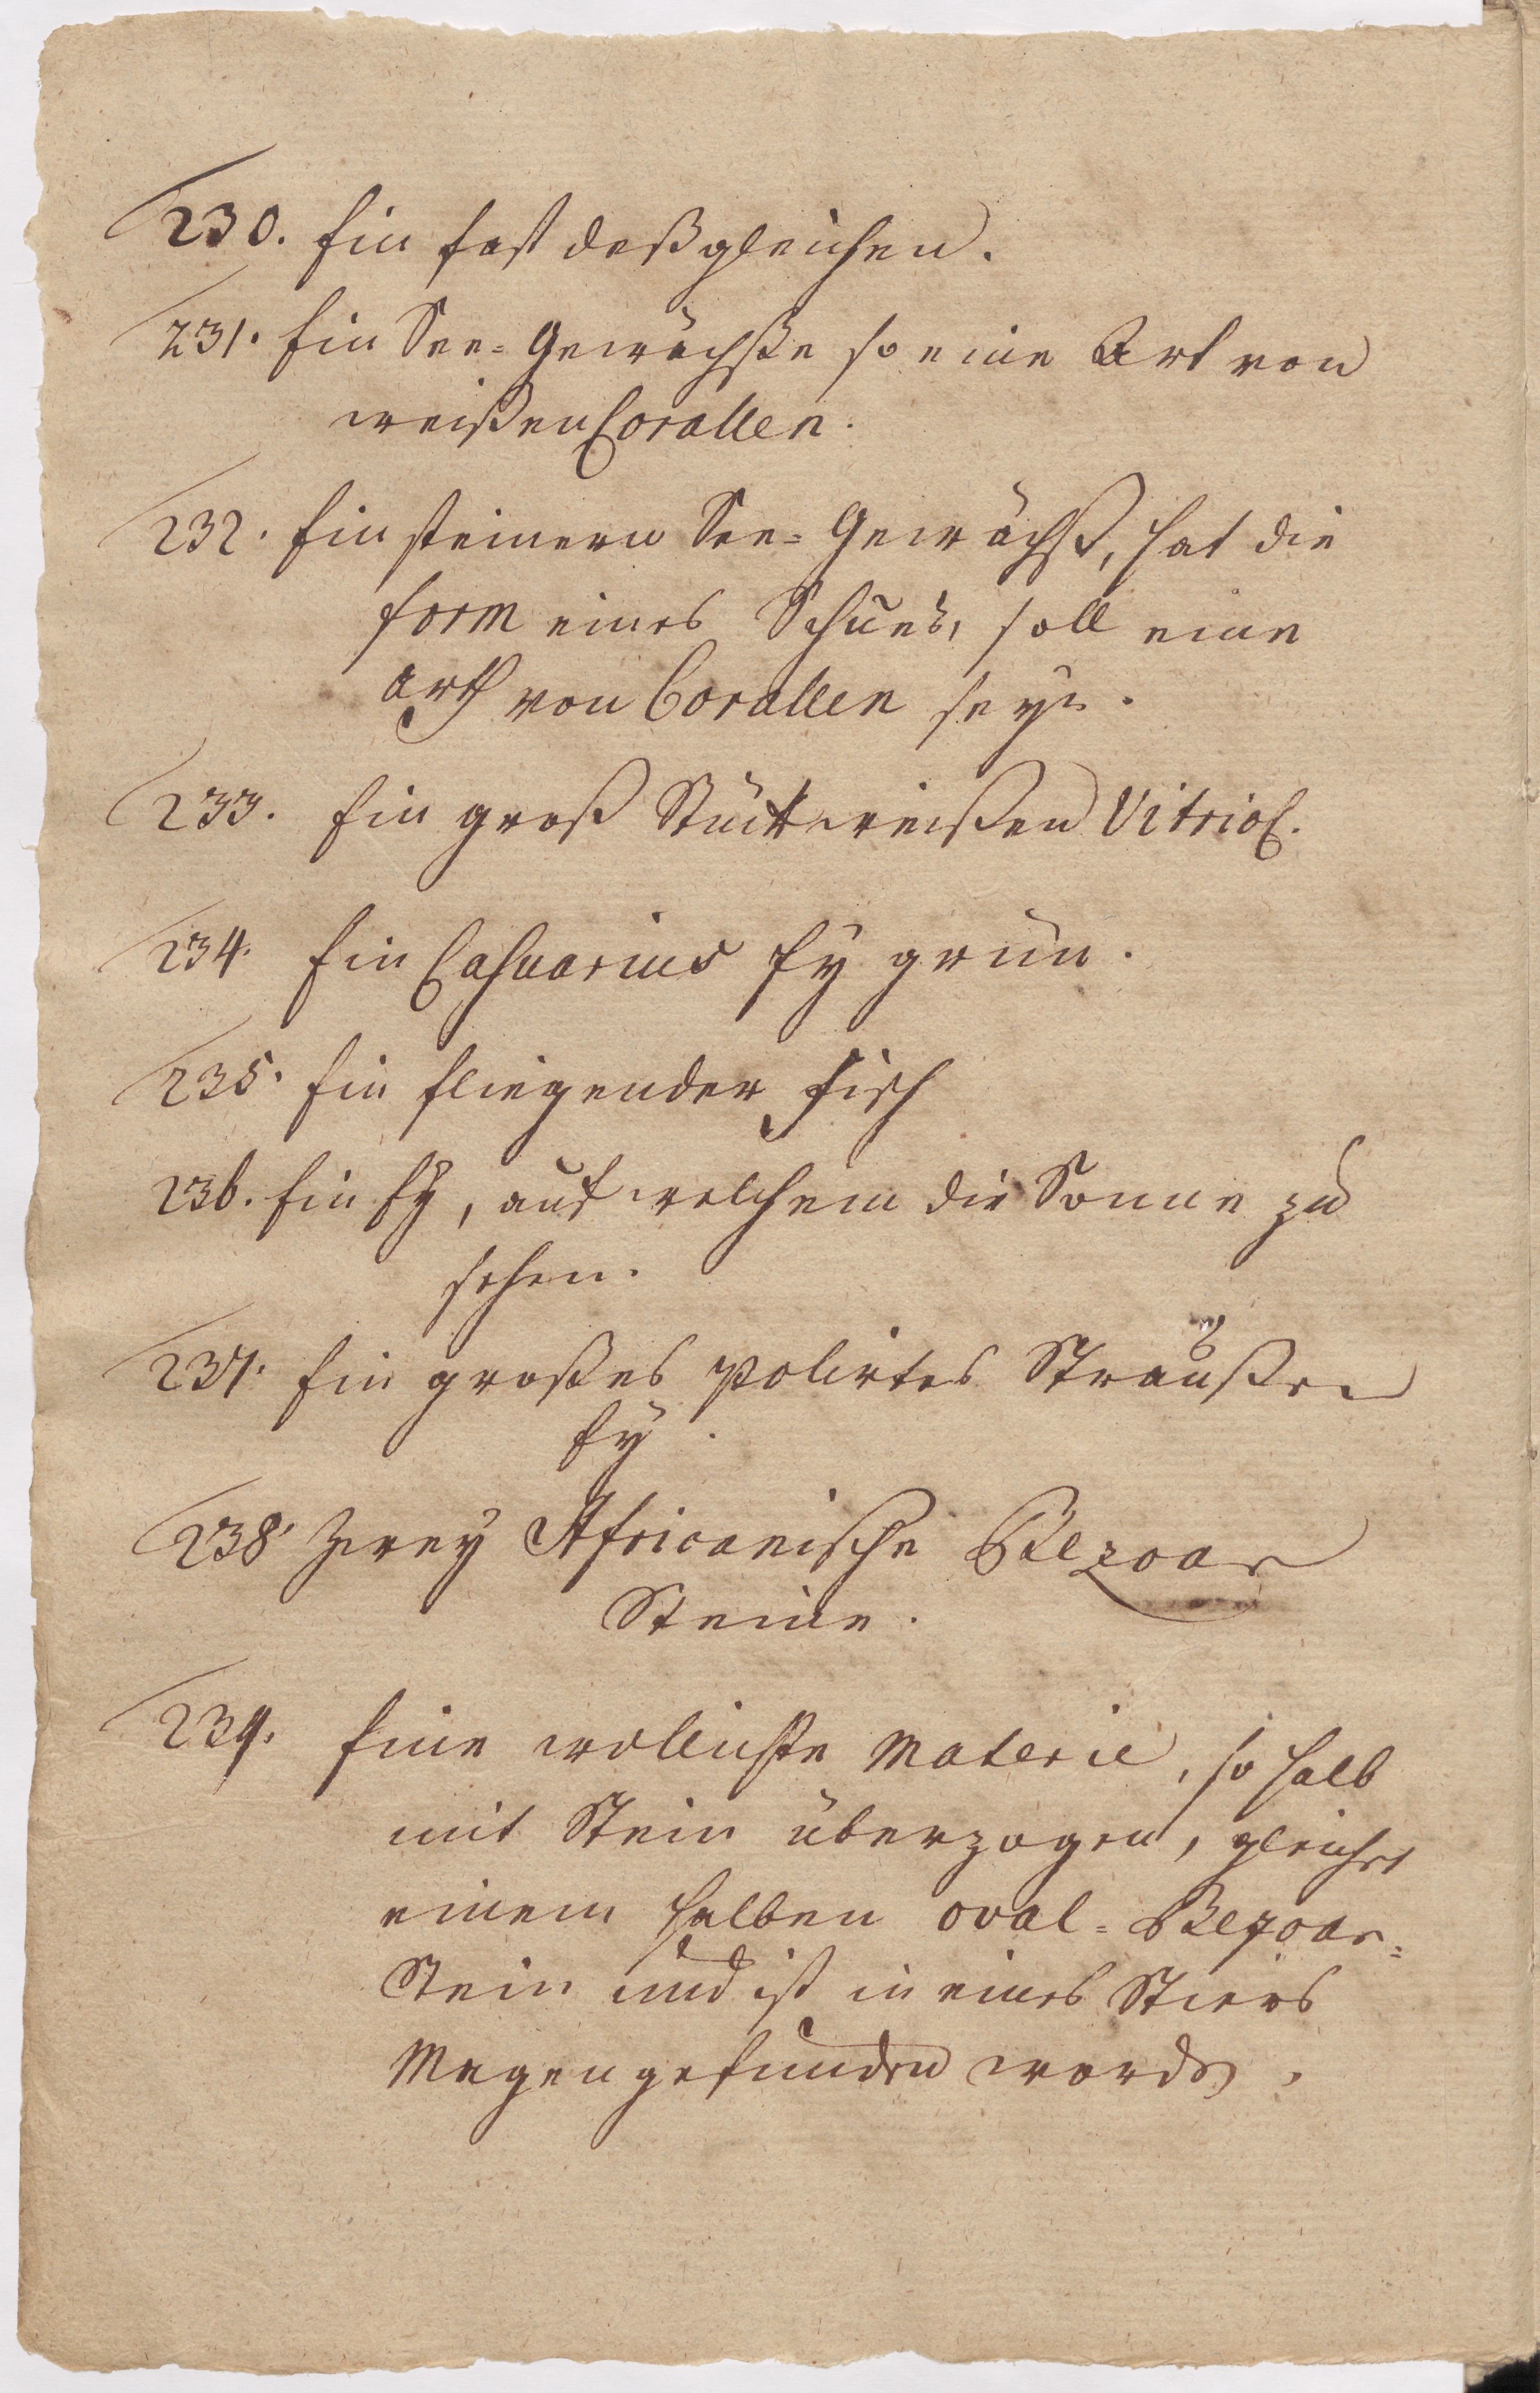 230. Ein fast deßgleichen.
231. Ein See=Gewächße so eine Art von
weißen Corallen.
232. Ein steinern See=Gewächß, hat die
form eines Schues, soll eine
Arth von Corallen seyn.
233. Ein groß Stück weißen Vitriol.
234. Ein Casuarius Ey grün.
235. Ein fliegender Fisch
236. Ein Ey, auf welchem die Sonne zu
sehen.
237. Ein großes polirtes Straußen
Ey.
238. Zwey Africanische Bezoar
Steine.
239. Eine wollichte Materie, so halb
mit Stein überzogen, gleichet
einem halben oval=Bezoar=
Stein und ist in eines Stiers
Magen gefunden worden.